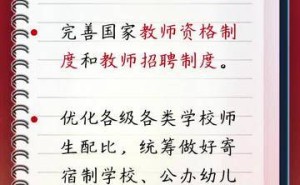 完善国家教师资格制
度和教师招聘制度。
优化各级各类学校师
生配比，统筹做好寄
宿制学校、公办幼儿